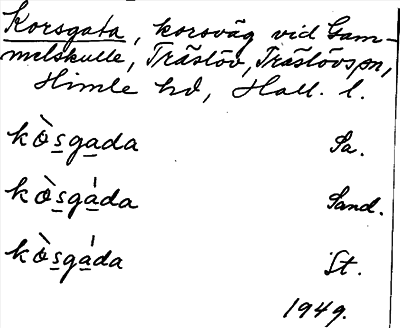 Korsgata, korsväg vid Gam-
melskulle, Träslöv, Träslövs sn,
Himle hd, Hall. l.
kòsgada Sa.
kòsgáda Sand.
kòsgáda St.
1949.